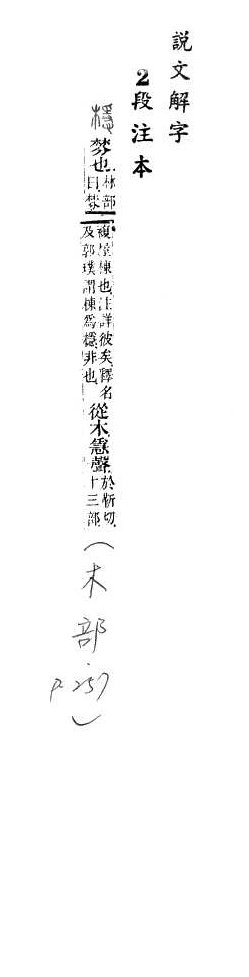 說文解字
2段注本
檼 棼也林部曰棼複屋棟也注詳彼矣釋名及郭璞謂棟爲檼非也從木㥯聲於靳切十三部(木部 P.257)